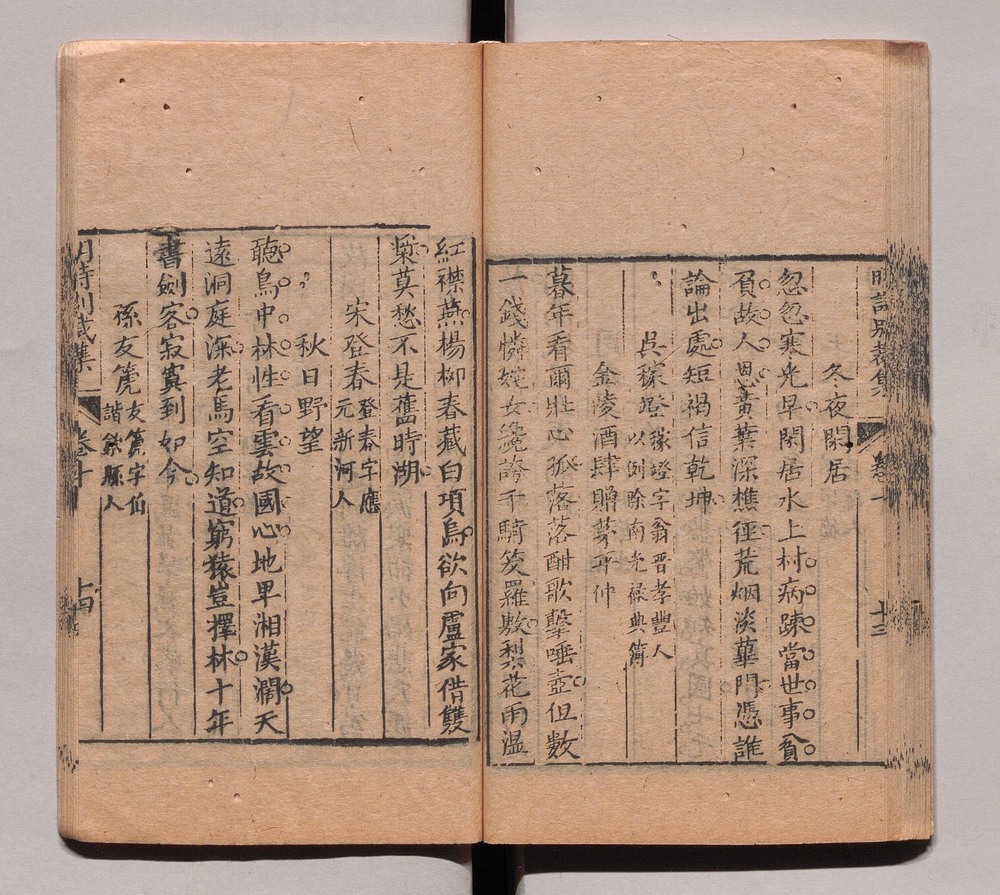 明詩別裁集
卷十
十三
冬夜閒居
忽忽寒光早閒居水上村病踈當世事貧
負故人恩黃葉深樵徑荒烟淡蓽門憑誰
論出處短褐信乾坤
吳稼竳 稼竳字翁晉孝豐人
以例除南光祿典簿
金陵酒肆贈茅平仲
暮年看爾壯心孤落落酣歌擊唾壺但數
一錢憐姹女纔誇千騎笑羅敷梨花雨濕
紅襟燕楊柳春藏白項烏欲向盧家借雙
槳莫愁不是舊時湖
宋登春 登春字應
元新河人
秋日野望
聽鳥中林性看雲故國心地卑湘漢濶天
遠洞庭深老馬空知道窮猿豈擇林十年
書劍客寂寞到如今
孫友篪 友篪字伯
諧歙縣人
明詩別裁集
卷十
十四